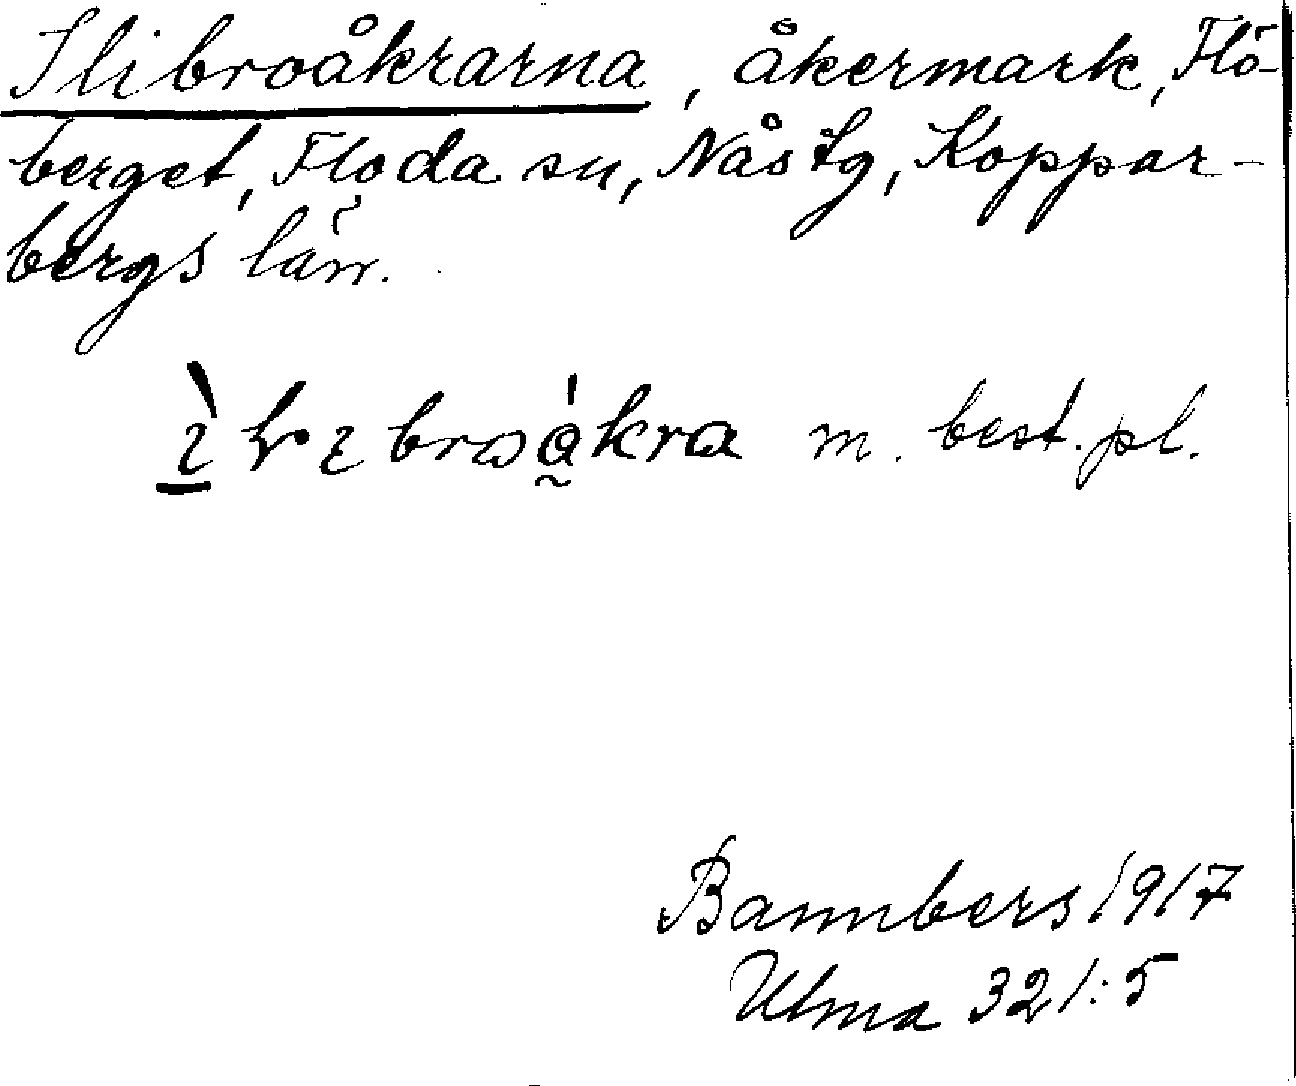 Ilibroåkrarna, åkermark, Flö-
berget, Floda sn, Nås tg, Koppar-
bergs län.
m. best. pl.
Bannbers 1917
Ulma 321:5